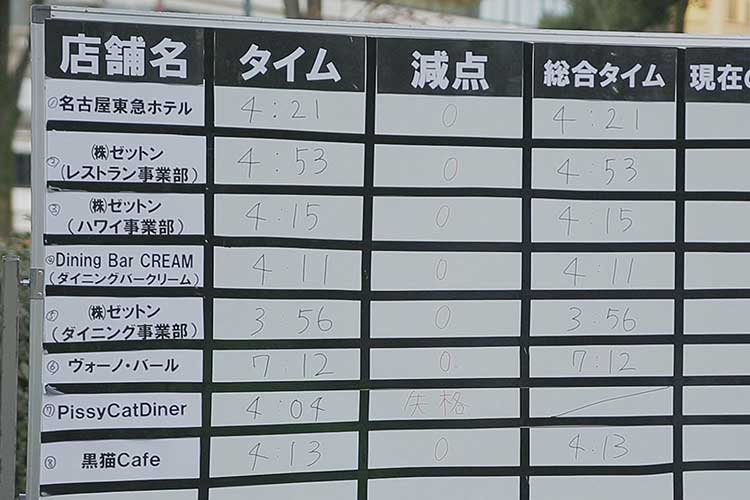 店舗名 タイム 減点 総合タイム 現在の
① 名古屋東急ホテル 4:21 0 4:21
② ㈱ゼットン
(レストラン事業部) 4:53 0 4:53
③ ㈱ゼットン
(ハワイ事業部) 4:15 0 4:15
④ Dining Bar CREAM
(ダイニングバークリーム) 4:11 0 4:11
⑤ ㈱ゼットン
(ダイニング事業部) 3:56 0 3:56
⑥ ヴォーノ・バール 7:12 0 7:12
⑦ PissyCatDiner 4:04 失格
⑧ 黒猫Cafe 4:13 0 4:13